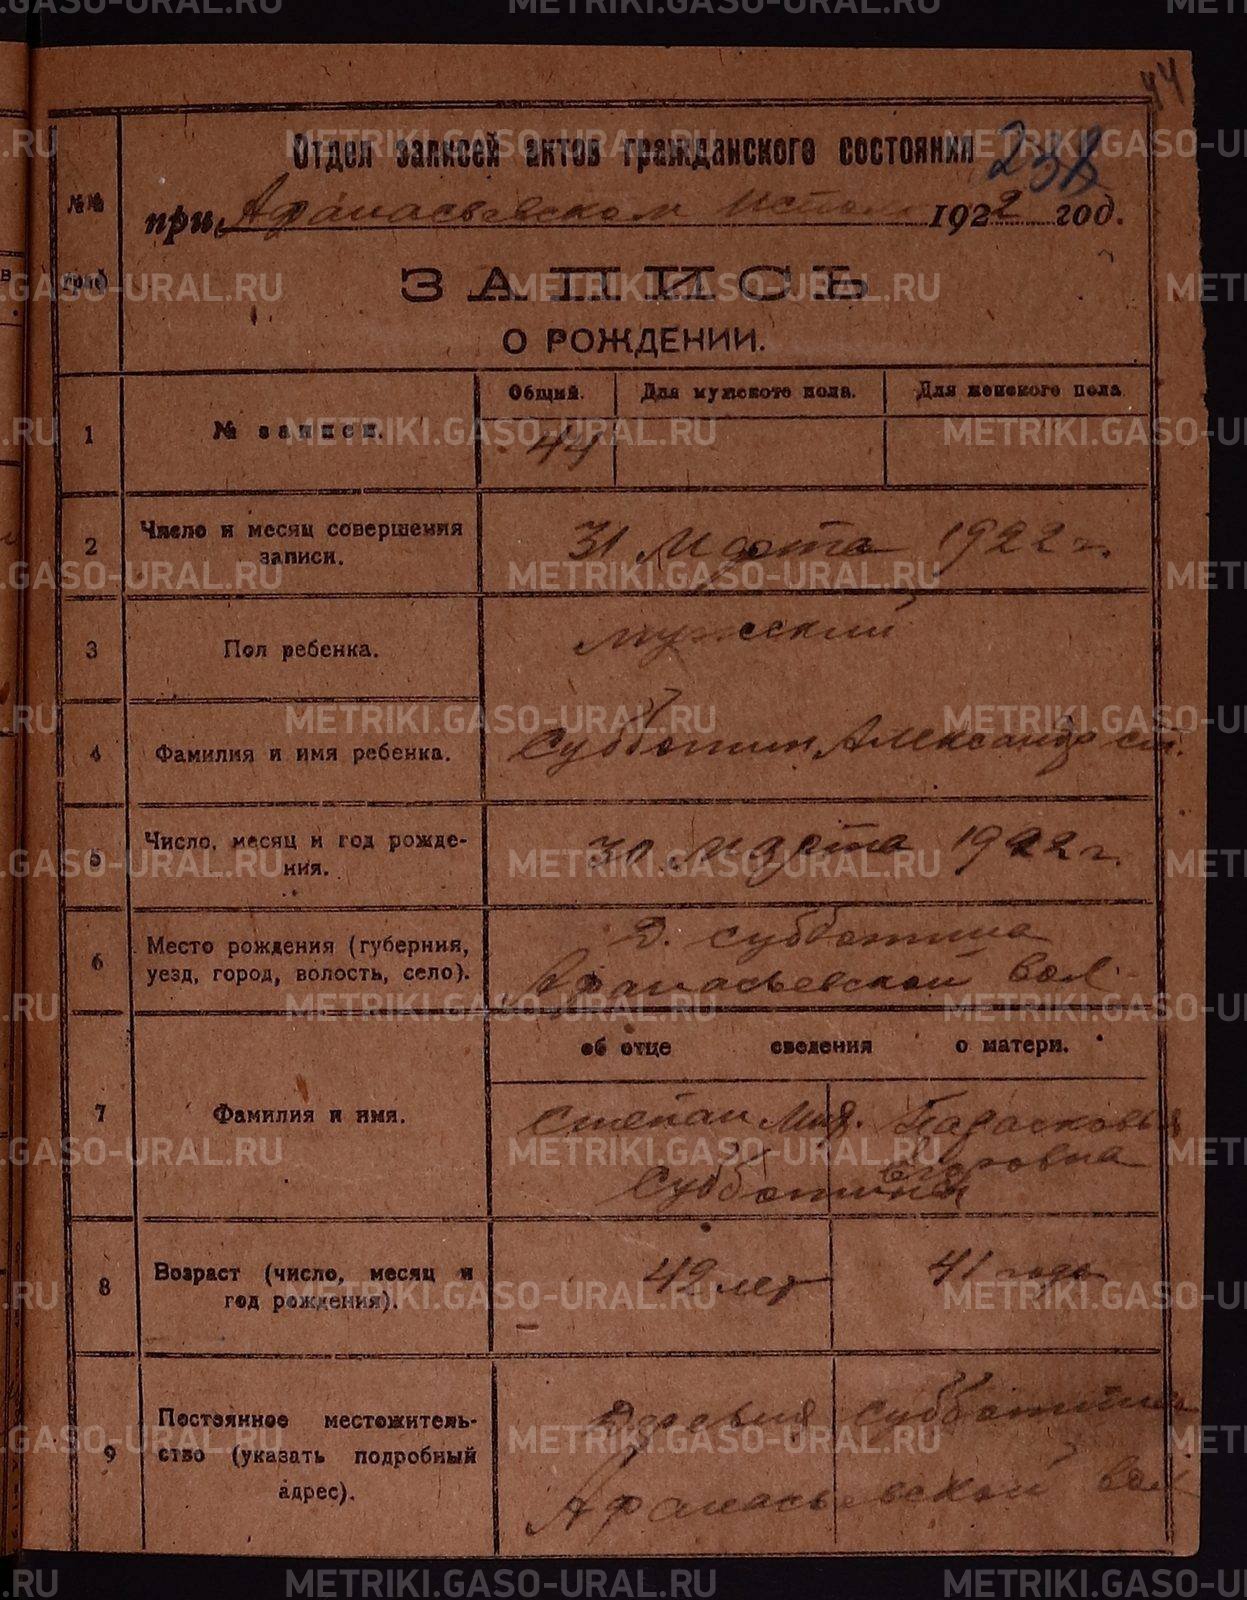 44
Отдел записей актов гражданского состояния
238
при Афанасьевском Исполк 1922 год.
№№ граф
ЗАПИСЬ
О РОЖДЕНИИ.
1 № записи. Общий. Для мужского пола. Для женского пола
44
2 Число и месяц совершения записи. 31 Марта 1922 г.
3 Пол ребенка. мужский
4 Фамилия и имя ребенка. Субботин Александр ст.
5 Число, месяц и год рожде-
ния. 30 Марта 1922 г.
6 Место рождения (губерния, Д. Субботина
уезд, город, волость, село). Афанасьевской вол
об отце сведения о матери.
7 Фамилия и имя. Степан Парасковья
Егоровна
Субботины
8 Возраст (число, месяц и 42 лет 41 года
год рождения).
9 Постоянное местожитель- Деревня Субботина
ство (указать подробный
адрес). Афанасьевской вол
METRIKI.GASO-URAL.RU